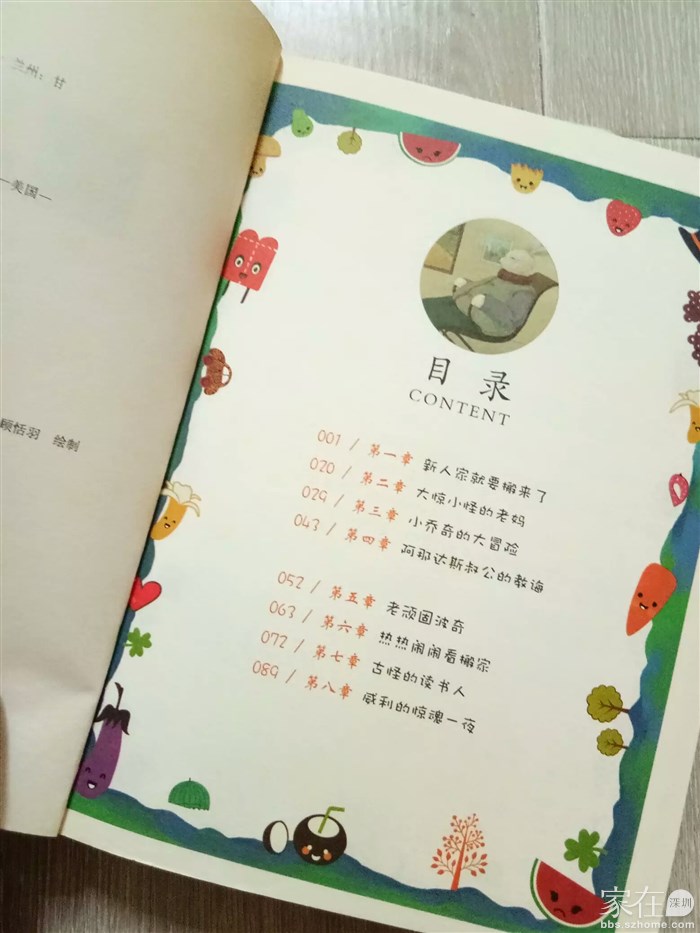 兰州：甘
—美国—
顾恬羽 绘制
目录
CONTENT
001 / 第一章 新人家就要搬来了
020 / 第二章 大惊小怪的老妈
029 / 第三章 小乔奇的大冒险
043 / 第四章 阿那达斯叔公的教诲
052 / 第五章 老顽固波奇
063 / 第六章 热热闹闹看搬家
072 / 第七章 古怪的读书人
089 / 第八章 威利的惊魂一夜
家在深圳
bbs.szhome.com